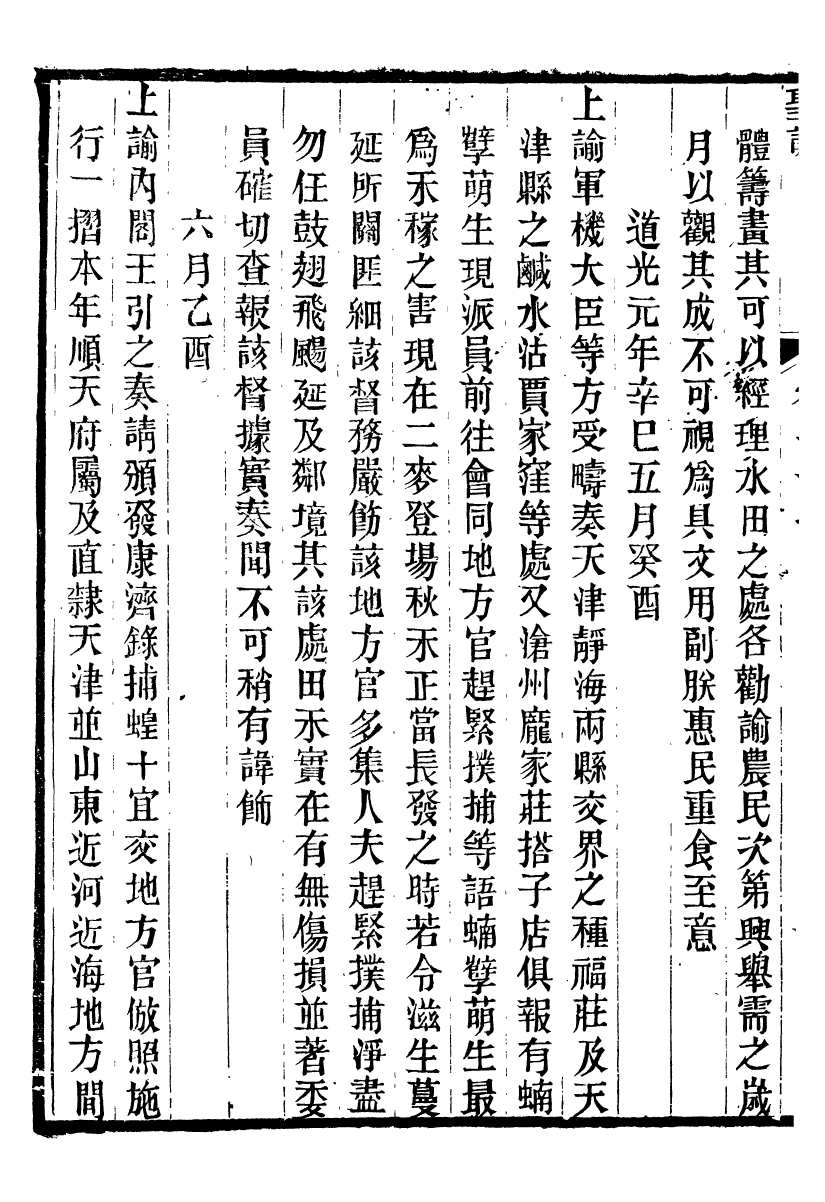 體籌畫其可以經理水田之處各勸諭農民次第興舉需之歲
月以觀其成不可視爲具文用副朕惠民重食至意
道光元年辛巳五月癸酉
上諭軍機大臣等方受疇奏天津靜海兩縣交界之種福莊及天
津縣之鹹水沽賈家窪等處又滄州龐家莊搭子店俱報有蝻
孽萌生現派員前往會同地方官趕緊撲捕等語蝻孽萌生最
爲禾稼之害現在二麥登場秋禾正當長發之時若令滋生蔓
延所關匪細該督務嚴飭該地方官多集人夫趕緊撲捕淨盡
勿任鼓翅飛颺延及鄰境其該處田禾實在有無傷損並著委
員確切查報該督據實奏聞不可稍有諱飾
六月乙酉
上諭內閣王引之奏請頒發康濟錄捕蝗十宜交地方官倣照施
行一摺本年順天府屬及直隸天津並山東近河近海地方間